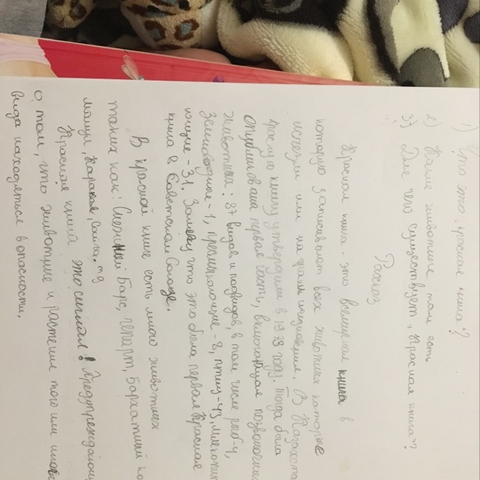 1) Что это красная книга?
2) Какие животные там есть
3) Для чего существует Красная книга?
Рассказ
Красная книга - это всемирная книга в
которую записывают всех животных которые
исчезли или на грани исчезновения. В Казахста
красную книгу утвердили в 1978 году. Тогда была
опубликована первая часть, включающая позвоночны
животных: 87 видов и подвидов, в том числе рыб 4,
Земноводное-1, пресмыкающие-8, птиц-43, млекопит
ющие-31. Замечу что это была первая Красная
книга в Советском Союзе.
В красной книге есть много животных
таких как: Снежный Барс, гепард, Бархатный ко
манул, Каракал, Сайга.
Красная книга это сигнал! Предупреждающ
о том, что животные и растения того или иново
вида находятся в опасности.